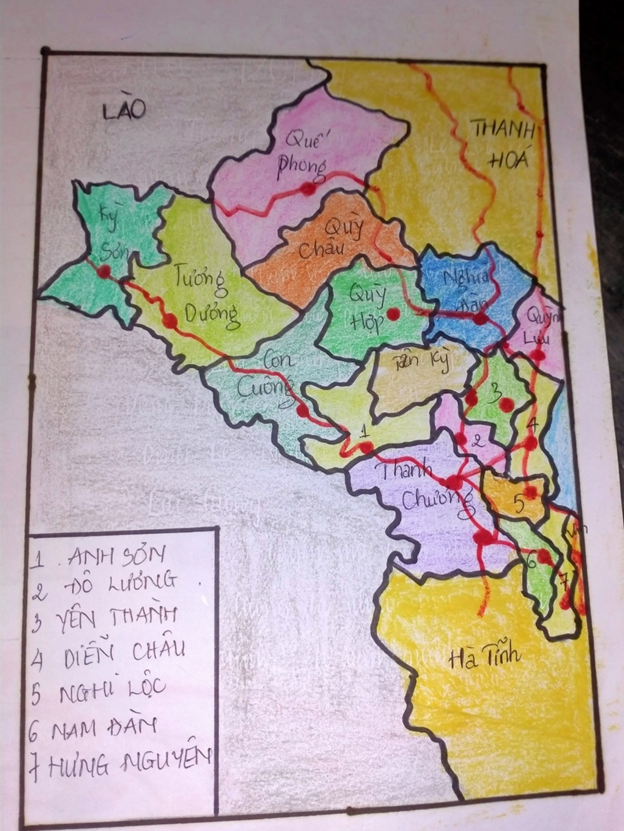 LÀO
THANH
HOÁ
Quế
Phong
Kỳ
Sơn
Quỳ
Châu
Tương
Dương
Nghĩa
Đàn
Quỳ
Hợp
Quỳnh
Lưu
Con
Cuông
Tân Kỳ
3
1
2
4
Thanh
Chương
5
6
7
Hà Tĩnh
1 ANH SƠN
2 ĐÔ LƯƠNG
3 YÊN THÀNH
4 DIỄN CHÂU
5 NGHI LỘC
6 NAM ĐÀN
7 HƯNG NGUYÊN